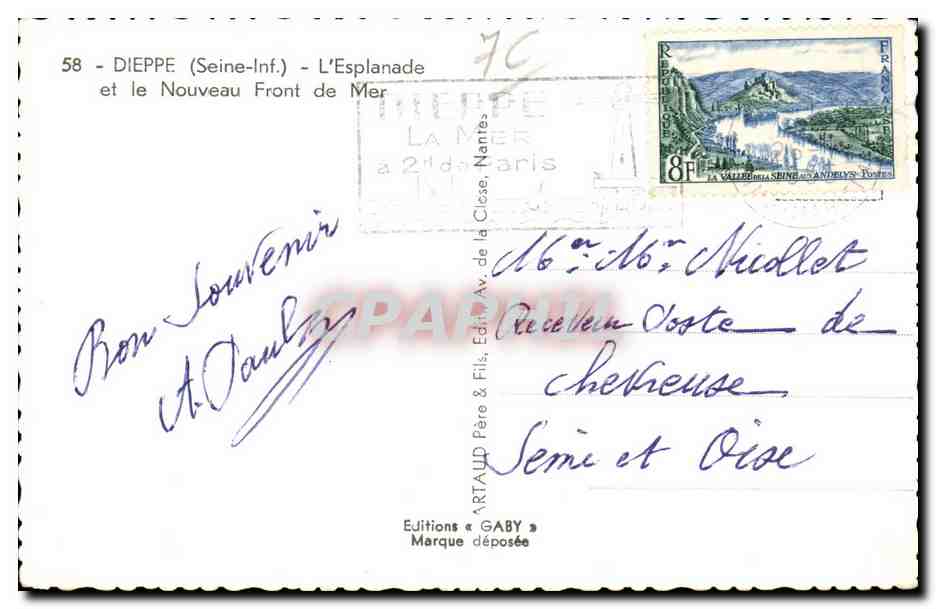 58 - DIEPPE (Seine-Inf.) - L'Esplanade
et le Nouveau Front de Mer
7C
DIEPPE
LA MER
à 2h de Paris
RÉPUBLIQUE
FRANÇAISE
8F
LA VALLÉE DE LA SEINE AUX ANDELYS - POSTES
Bon Souvenir
A. Pauly
CPAPHIL
ARTAUD Père & Fils, Edit., Av. de la Close, Nantes
Mr. Mr Nicollet
Receveur Poste de
Chevreuse
Seine et Oise
Editions « GABY »
Marque déposée